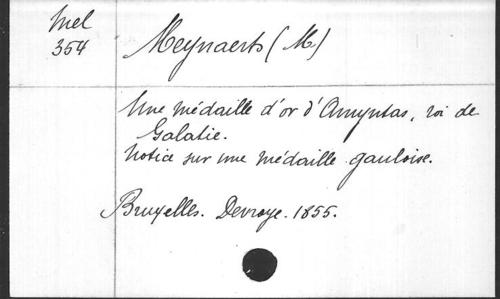 Mel
354
Meynaerts (M)
Une médaille d'or d'Amyntas, roi de
Galatie.
Notice sur une médaille gauloise.
Bruxelles. Devroye. 1855.